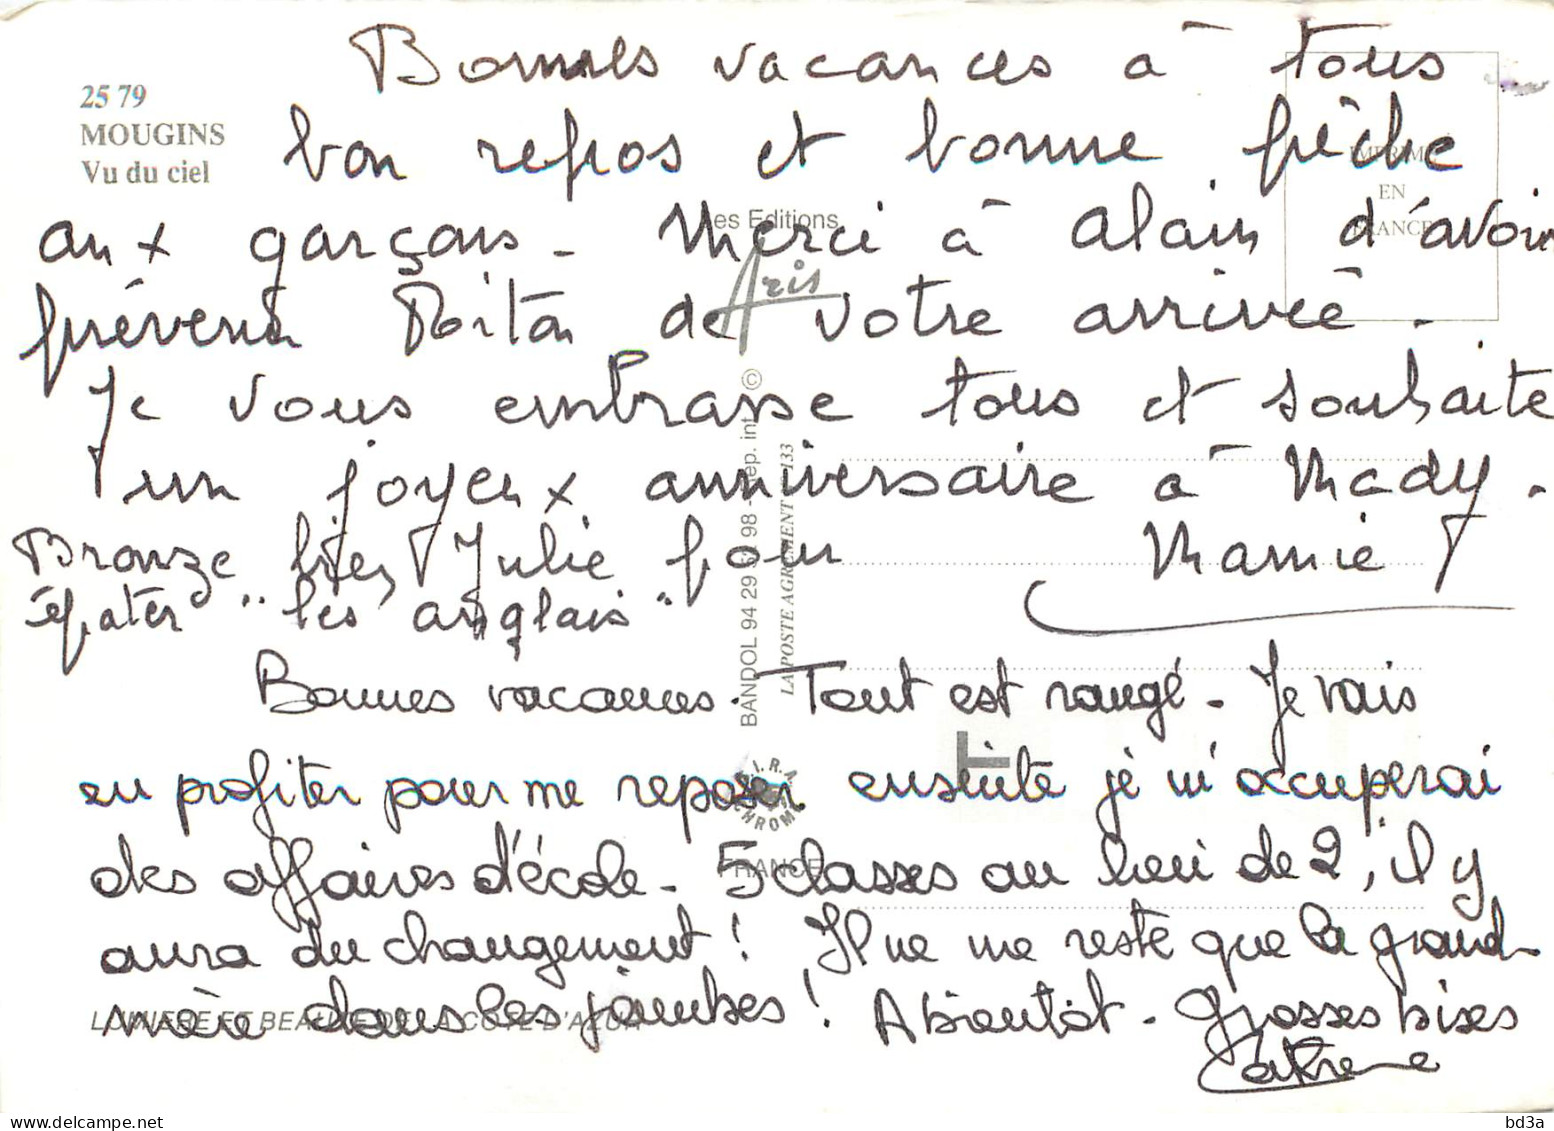 25 79
MOUGINS
Vu du ciel
Bonnes vacances à tous
bon repos et bonne pêche
aux garçons - Merci à Alain d'avoir
prévenu de votre arrivée.
Je vous embrasse tous et souhaite
un joyeux anniversaire à Mady.
Bronze bien Julie pour
épater "les anglais"
Mamie
Bonnes vacances. Tout est rangé - Je vais
en profiter pour me reposer ensuite je m'occuperai
des affaires d'école - 5 classes au lieu de 2, il y
aura du changement ! Il ne me reste que la grand
mère dans les jambes ! A bientôt - Grosses bises
IMPRIMÉ
EN
FRANCE
Les Editions
Aris
BANDOL 94 29 98 - Dep. int. ©
LA POSTE AGREMENT 133
S.I.R.A.
CHROME
FRANCE
LUMIERE ET BEAUTE DE LA COTE D'AZUR
bd3a